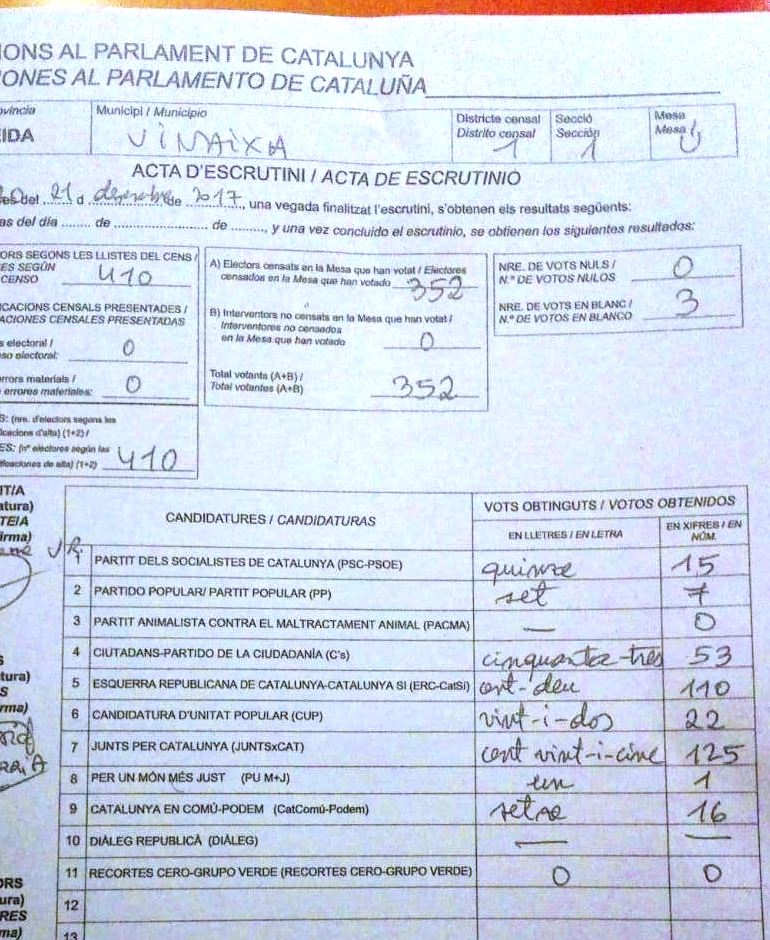 IONS AL PARLAMENT DE CATALUNYA
IONES AL PARLAMENTO DE CATALUÑA
ovíncia Municipi / Municipio Districte censal Secció Mesa
EIDA VINAIXA Distrito censal 1 Sección 1 Mesa U
ACTA D'ESCRUTINI / ACTA DE ESCRUTINIO
del 21 d desembre de 2017, una vegada finalitzat l'escrutini, s'obtenen els resultats següents:
as del día ........ de ........................ de ........, y una vez concluido el escrutinio, se obtienen los siguientes resultados:
ORS SEGONS LES LLISTES DEL CENS /
ES SEGÚN
CENSO 410
ICACIONS CENSALS PRESENTADES /
ACIONES CENSALES PRESENTADAS
s electoral /
so electoral: 0
errors materials /
errores materiales: 0
S: (nre. d'electors segons les
ficacions d'alta) (1+2) /
ES: (nº electores según las
ificaciones de alta) (1+2) 410
A) Electors censats en la Mesa que han votat / Electores
censados en la Mesa que han votado 352
B) Interventors no censats en la Mesa que han votat /
Interventores no censados
en la Mesa que han votado 0
Total votants (A+B) /
Total votantes (A+B) 352
NRE. DE VOTS NULS /
N.º DE VOTOS NULOS 0
NRE. DE VOTS EN BLANC /
N.º DE VOTOS EN BLANCO 3
NT/A
atura)
TE/A
irma)
CANDIDATURES / CANDIDATURAS VOTS OBTINGUTS / VOTOS OBTENIDOS
EN LLETRES / EN LETRA EN XIFRES / EN NÚM.
1 PARTIT DELS SOCIALISTES DE CATALUNYA (PSC-PSOE) quinze 15
2 PARTIDO POPULAR/ PARTIT POPULAR (PP) set 7
3 PARTIT ANIMALISTA CONTRA EL MALTRACTAMENT ANIMAL (PACMA) — 0
4 CIUTADANS-PARTIDO DE LA CIUDADANÍA (C's) cinquanta-tres 53
5 ESQUERRA REPUBLICANA DE CATALUNYA-CATALUNYA SÍ (ERC-CatSí) cent-deu 110
6 CANDIDATURA D'UNITAT POPULAR (CUP) vint-i-dos 22
7 JUNTS PER CATALUNYA (JUNTSxCAT) cent vint-i-cinc 125
8 PER UN MÓN MÉS JUST (PU M+J) un 1
9 CATALUNYA EN COMÚ-PODEM (CatComú-Podem) setze 16
10 DIÀLEG REPUBLICÀ (DIÀLEG) — —
11 RECORTES CERO-GRUPO VERDE (RECORTES CERO-GRUPO VERDE) 0 0
12
13
S
tura)
S
rma)
ORS
ura)
RES
ma)